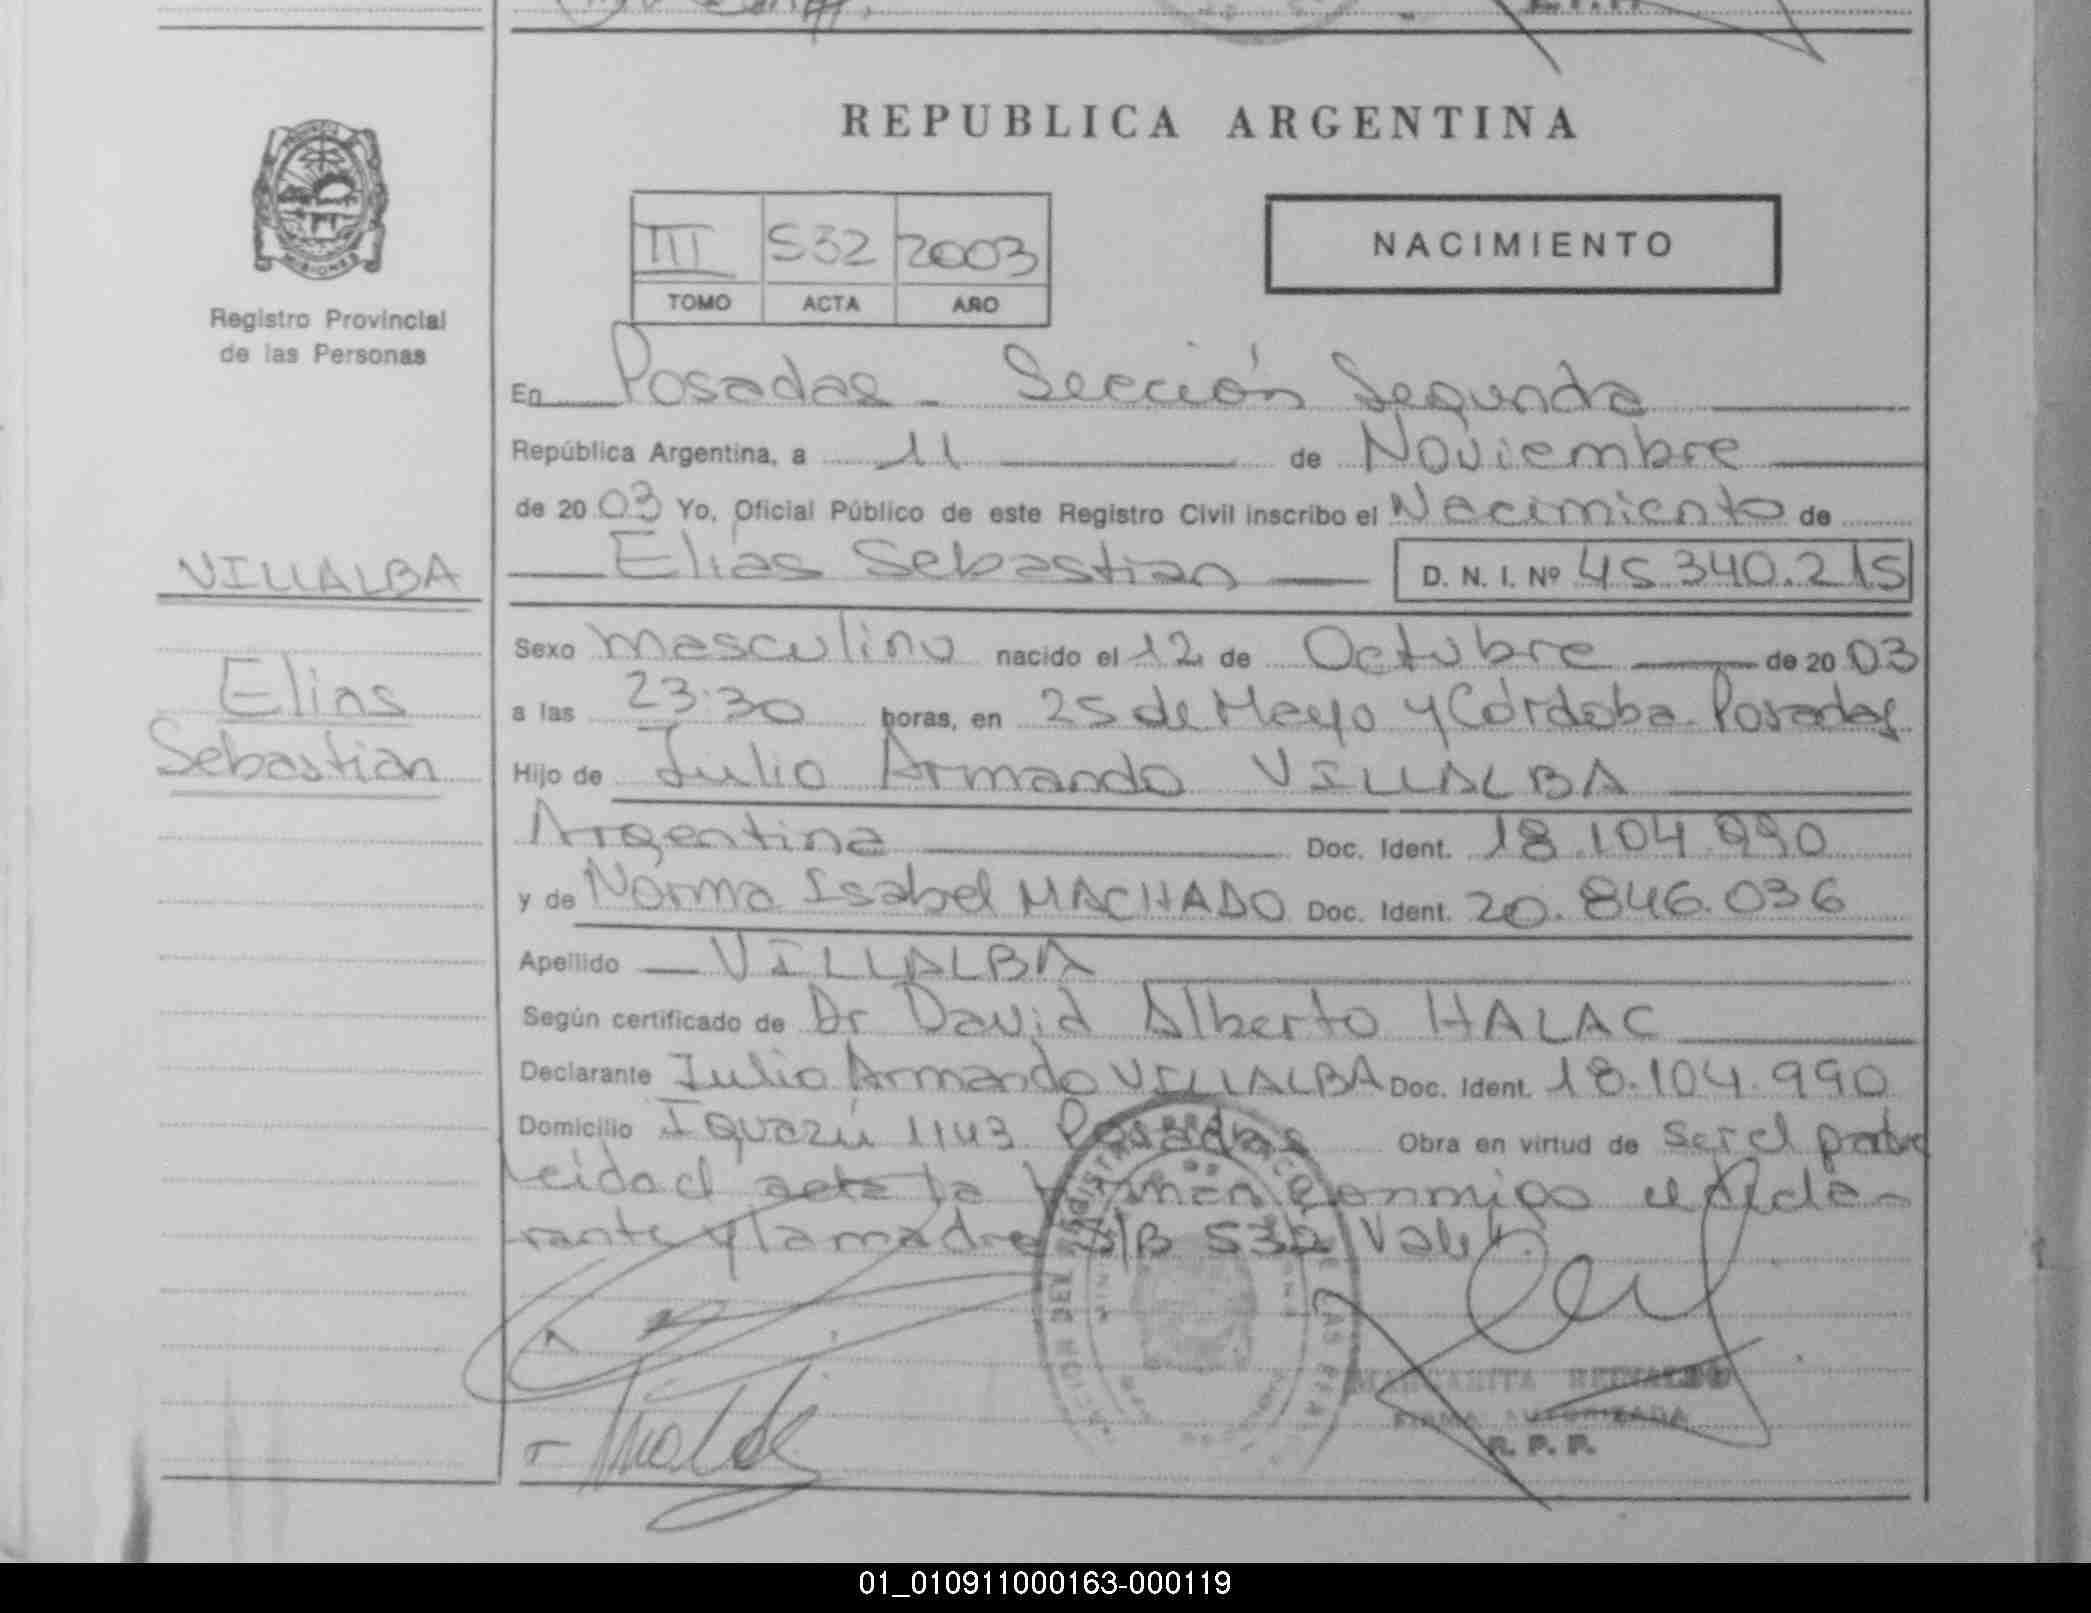 REPUBLICA ARGENTINA
MISIONES
Registro Provincial
de las Personas
III 532 2003
TOMO ACTA AÑO
NACIMIENTO
En Posadas - Sección Segunda
República Argentina, a 11 de Noviembre
de 20 03 Yo, Oficial Público de este Registro Civil inscribo el Nacimiento de
Elias Sebastian D. N. I. Nº 45.340.215
VILLALBA
Elias
Sebastian
Sexo masculino nacido el 12 de Octubre de 20 03
a las 23:30 horas, en 25 de Mayo y Córdoba Posadas
Hijo de Julio Armando VILLALBA
Argentina Doc. Ident. 18.104.990
y de Norma Isabel MACHADO Doc. Ident. 20.846.036
Apellido VILLALBA
Según certificado de Dr David Alberto HALAC
Declarante Julio Armando VILLALBA Doc. Ident. 18.104.990
Domicilio Iguazú 1143 Posadas Obra en virtud de ser el padre
leida el acta la firman conmigo el decla-
rante y la madre S/B 532 Vale.
MARGARITA REINALDO
FIRMA AUTORIZADA
R. P. P.
01_010911000163-000119